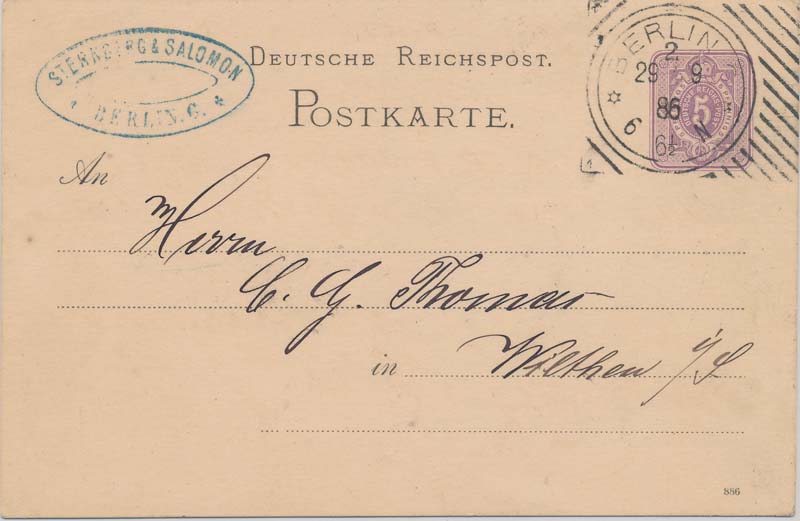 STERNBERG & SALOMON
* BERLIN. C. *
DEUTSCHE REICHSPOST.
POSTKARTE.
BERLIN
2.
29 9
86
6 6½ N
5
An
Herrn
C. G. Thomas
in Wilthen i/S
886